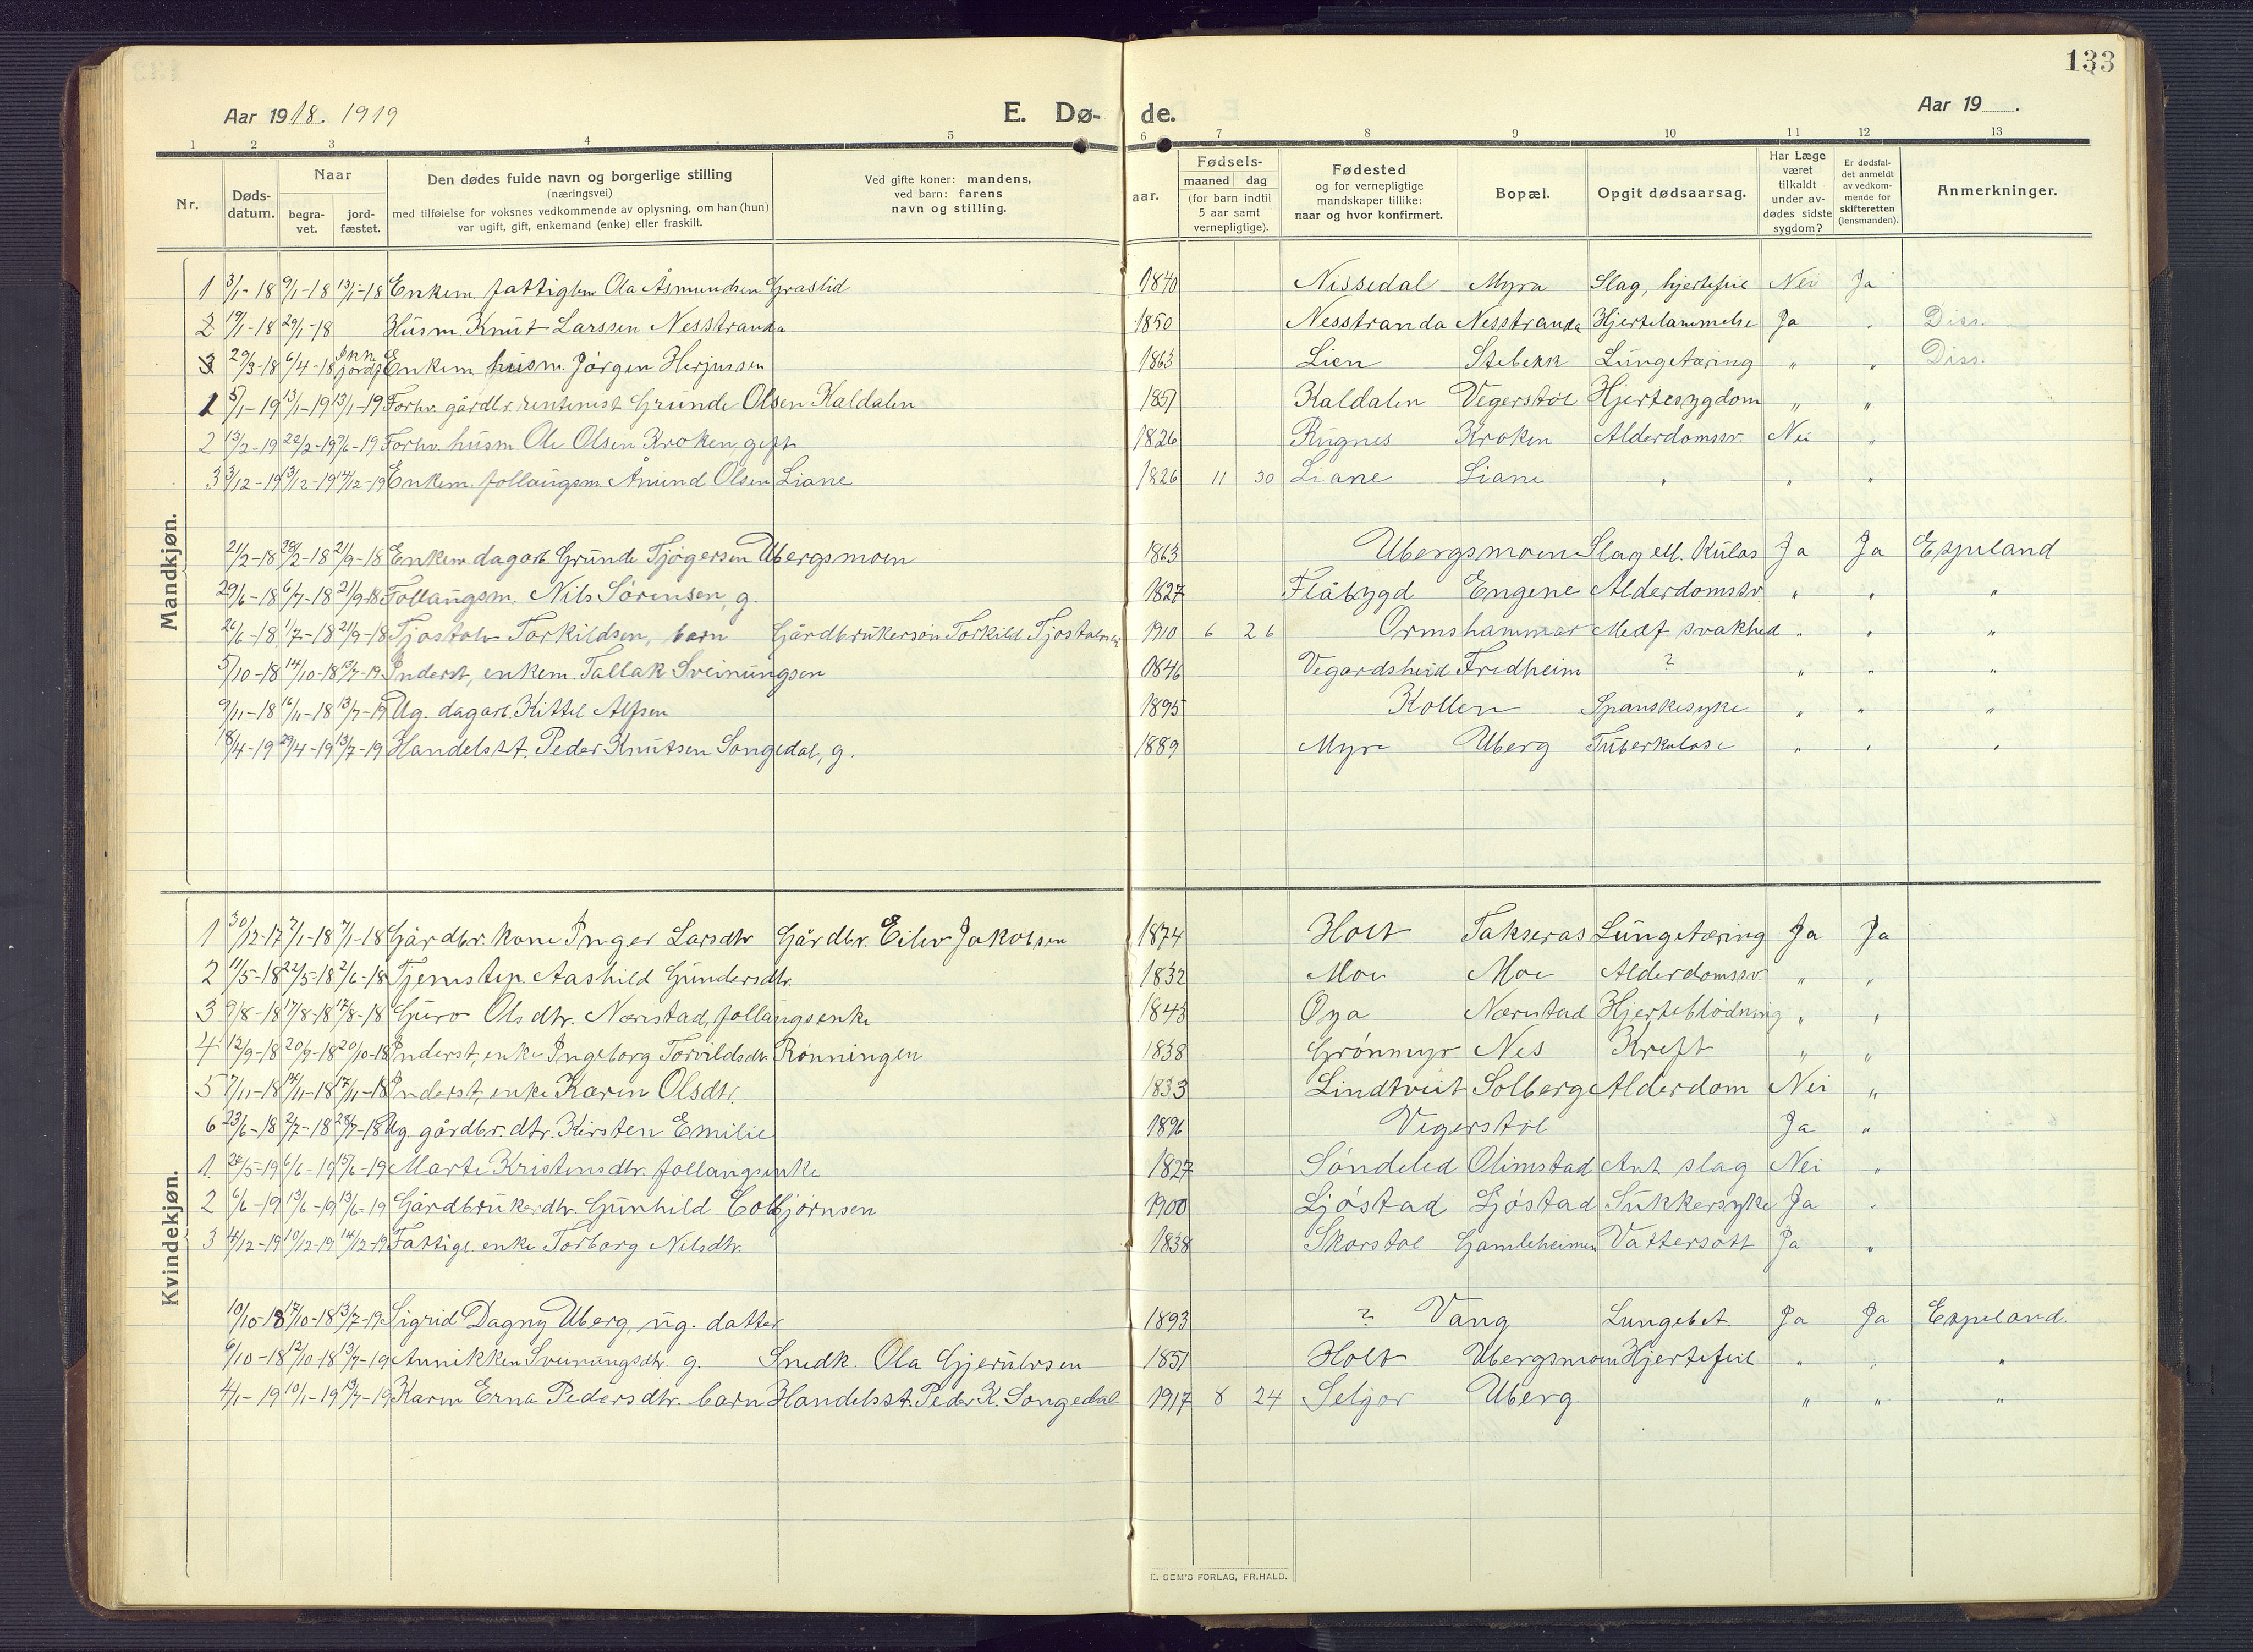 133
Aar 1918. 1919 E. Dø- de. Aar 19 .
1 2 3 4 5 6 7 8 9 10 11 12 13
Nr. Døds-datum. Naar begra-vet. jord-fæstet. Den dødes fulde navn og borgerlige stilling (næringsvei) med tilføielse for voksnes vedkommende av oplysning, om han (hun) var ugift, gift, enkemand (enke) eller fraskilt. Ved gifte koner: mandens, ved barn: farens navn og stilling. aar. Fødsels- maaned dag (for barn indtil 5 aar samt vernepligtige). Fødested og for vernepligtige mandskaper tillike: naar og hvor konfirmert. Bopæl. Opgit dødsaarsag. Har Læge været tilkaldt under av-dødes sidste sygdom? Er dødsfal-det anmeldt av vedkom-mende for skifteretten (lensmanden). Anmerkninger.
Mandkjøn.
1 3/1-18 9/1-18 13/1-18 Enkem. fattiglem Ola Åsmundsen Graslid 1840 Nissedal Myra Slag, hjertefeil Nei Ja
2 19/1-18 29/1-18 Husm. Knut Larssen Nesstranda 1850 Nesstranda Nesstranda Hjertelammelse Ja " Diss.
3 29/3-18 6/4-18 Ikke jordf. Enkem. husm. Jørgen Herjussen 1863 Lien Stebekk Lungetæring " " Diss.
1 5/1-19 13/1-19 13/1-19 Forhv. gårdbr. rentenist Grunde Olsen Kaldalen 1857 Kaldalen Vegerstøl Hjertesygdom " "
2 13/2-19 22/2-19 9/6-19 Forhv. husm. Ole Olsen Kroken, gift 1826 Rugnes Kroken Alderdomssv. Nei "
3 3/12-19 13/12-19 14/12-19 Enkem. follaugsm. Åmund Olsen Liane 1826 11 30 Liane Liane " " "
21/2-18 28/2-18 21/9-18 Enkem. dagarb. Grunde Tjøgersen Ubergsmoen 1863 Ubergsmoen Slag ell. Kulos Ja Ja Espeland
29/6-18 6/7-18 21/9-18 Follaugsm. Nils Sørensen, g. 1827 Flåbygd Engene Alderdomssv. " " "
26/6-18 1/7-18 21/9-18 Tjostolv Torkildsen, barn Gårdbrukersøn Torkild Tjostolvsen 1910 6 26 Ormshammar Medf. svakhed " " "
5/10-18 14/10-18 13/7-19 Inderst, enkem. Tallak Sveinungsen 1846 Vegardsheid Fredheim ? " " "
9/11-18 16/11-18 13/7-19 Ug. dagarb. Kittel Alfsen 1895 Kollen Spanskesyke " " "
18/4-19 29/4-19 13/7-19 Handelsst. Peder Knutsen Songedal, g. 1889 Myre Uberg Tuberkulose " " "
Kvindekjøn.
1 30/12-17 7/1-18 7/1-18 Gårdbr. kone Inger Larsdtr Gårdbr. Eilev Jakobsen 1874 Holt Takseras Lungetæring Ja Ja
2 11/5-18 22/5-18 2/6-18 Tjenstep. Aashild Gundersdtr. 1832 Moe Moe Alderdomssv. " "
3 9/8-18 17/8-18 17/8-18 Guro Olsdtr. Nærstad, follaugsenke 1843 Øya Nærstad Hjerteblødning " "
4 12/9-18 20/9-18 20/10-18 Inderst, enke Ingeborg Torvildsdtr. Rønningen 1838 Grønmyr Nes Kreft " "
5 7/11-18 14/11-18 17/11-18 Inderst, enke Karen Olsdtr. 1833 Lindtveit Solberg Alderdom Nei "
6 23/6-18 2/7-18 28/7-18 Ug. gårdbr. dtr. Kirsten Emilie 1896 Vegerstøl Ja "
1. 28/5-19 6/6-19 15/6-19 Marte Kristensdtr. follaugsenke 1827 Søndeled Olimstad Ant. slag Nei "
2 6/6-19 13/6-19 13/6-19 Gårdbrukerdtr. Gunhild Colbjørnsen 1900 Ljøstad Ljøstad Sukkersyke Ja "
3 4/12-19 10/12-19 14/12-19 Fattigl. enke Torborg Nilsdtr. 1838 Skorstøl Gamleheimen Vattersott Ja "
10/10-18 17/10-18 13/7-19 Sigrid Dagny Uberg, ug. datter 1893 ? Vang Lungebet. Ja Ja Espeland.
6/10-18 12/10-18 13/7-19 Annikken Sveinungsdtr. g. Snedk. Ola Gjerulvsen 1851 Holt Ubergsmoen Hjertefeil " " "
4/1-19 10/1-19 13/7-19 Karen Erna Pedersdtr. barn Handelsst. Peder K. Songedal 1917 8 24 Seljor Uberg " " "
E. SEM'S FORLAG, FR.HALD.